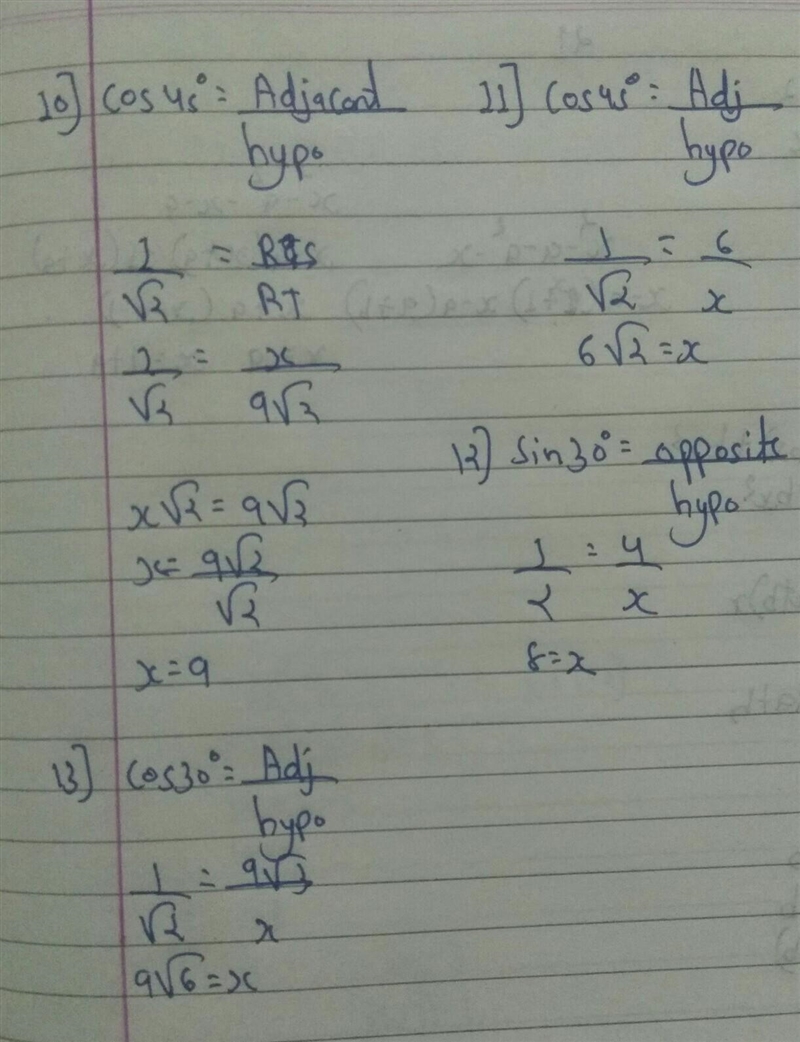 10] cos 45° = Adjacent / hypo
1/√2 = RS / RT
1/√2 = x / 9√2
x√2 = 9√2
x = 9√2 / √2
x = 9
11] cos 45° = Adj / hypo
1/√2 = 6 / x
6√2 = x
12] sin 30° = opposite / hypo
1/2 = 4 / x
8 = x
13] cos 30° = Adj / hypo
1/√2 = 9√3 / x
9√6 = x